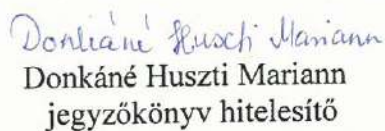 Donkáné Huszti Mariann
Donkáné Huszti Mariann
jegyzőkönyv hitelesítő